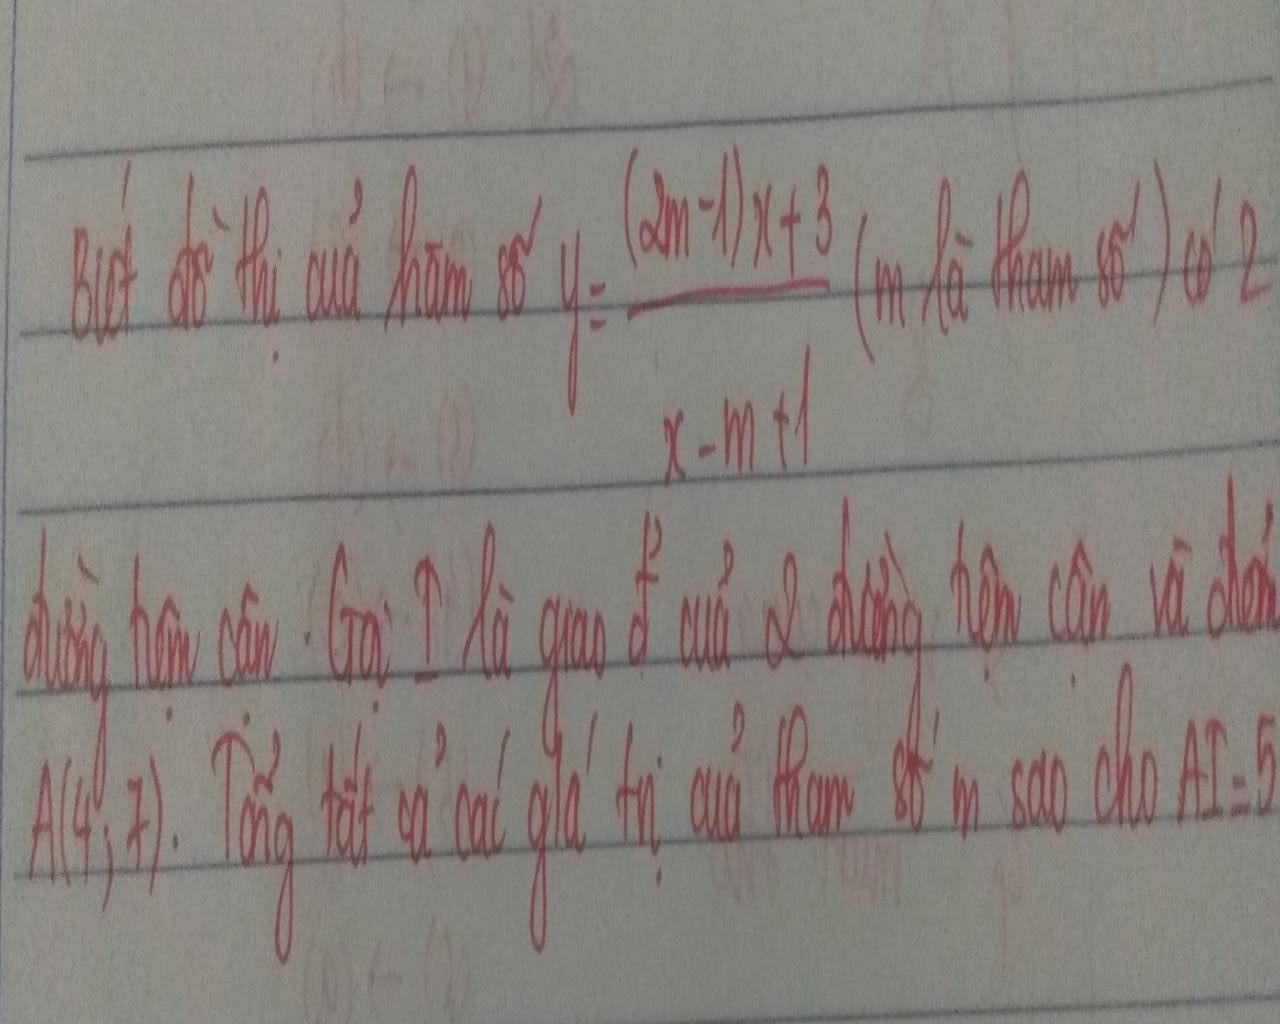 Biết đồ thị của hàm số y = \frac{(2m-1)x+3}{x-m+1} (m là tham số) có 2
đường tiệm cận. Gọi I là giao đ' của 2 đường tiệm cận và điểm
A(4;7). Tổng tất cả các giá trị của tham số m sao cho AI = 5